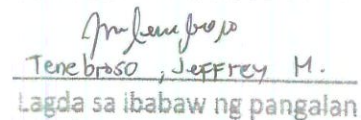 Tenebroso, Jeffrey M.
Lagda sa ibabaw ng pangalan